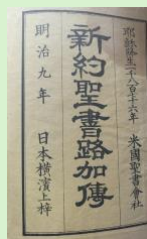 耶穌降生一千八百七十六年　米國聖書會社
新約聖書路加傳
明治九年　日本橫濱上梓